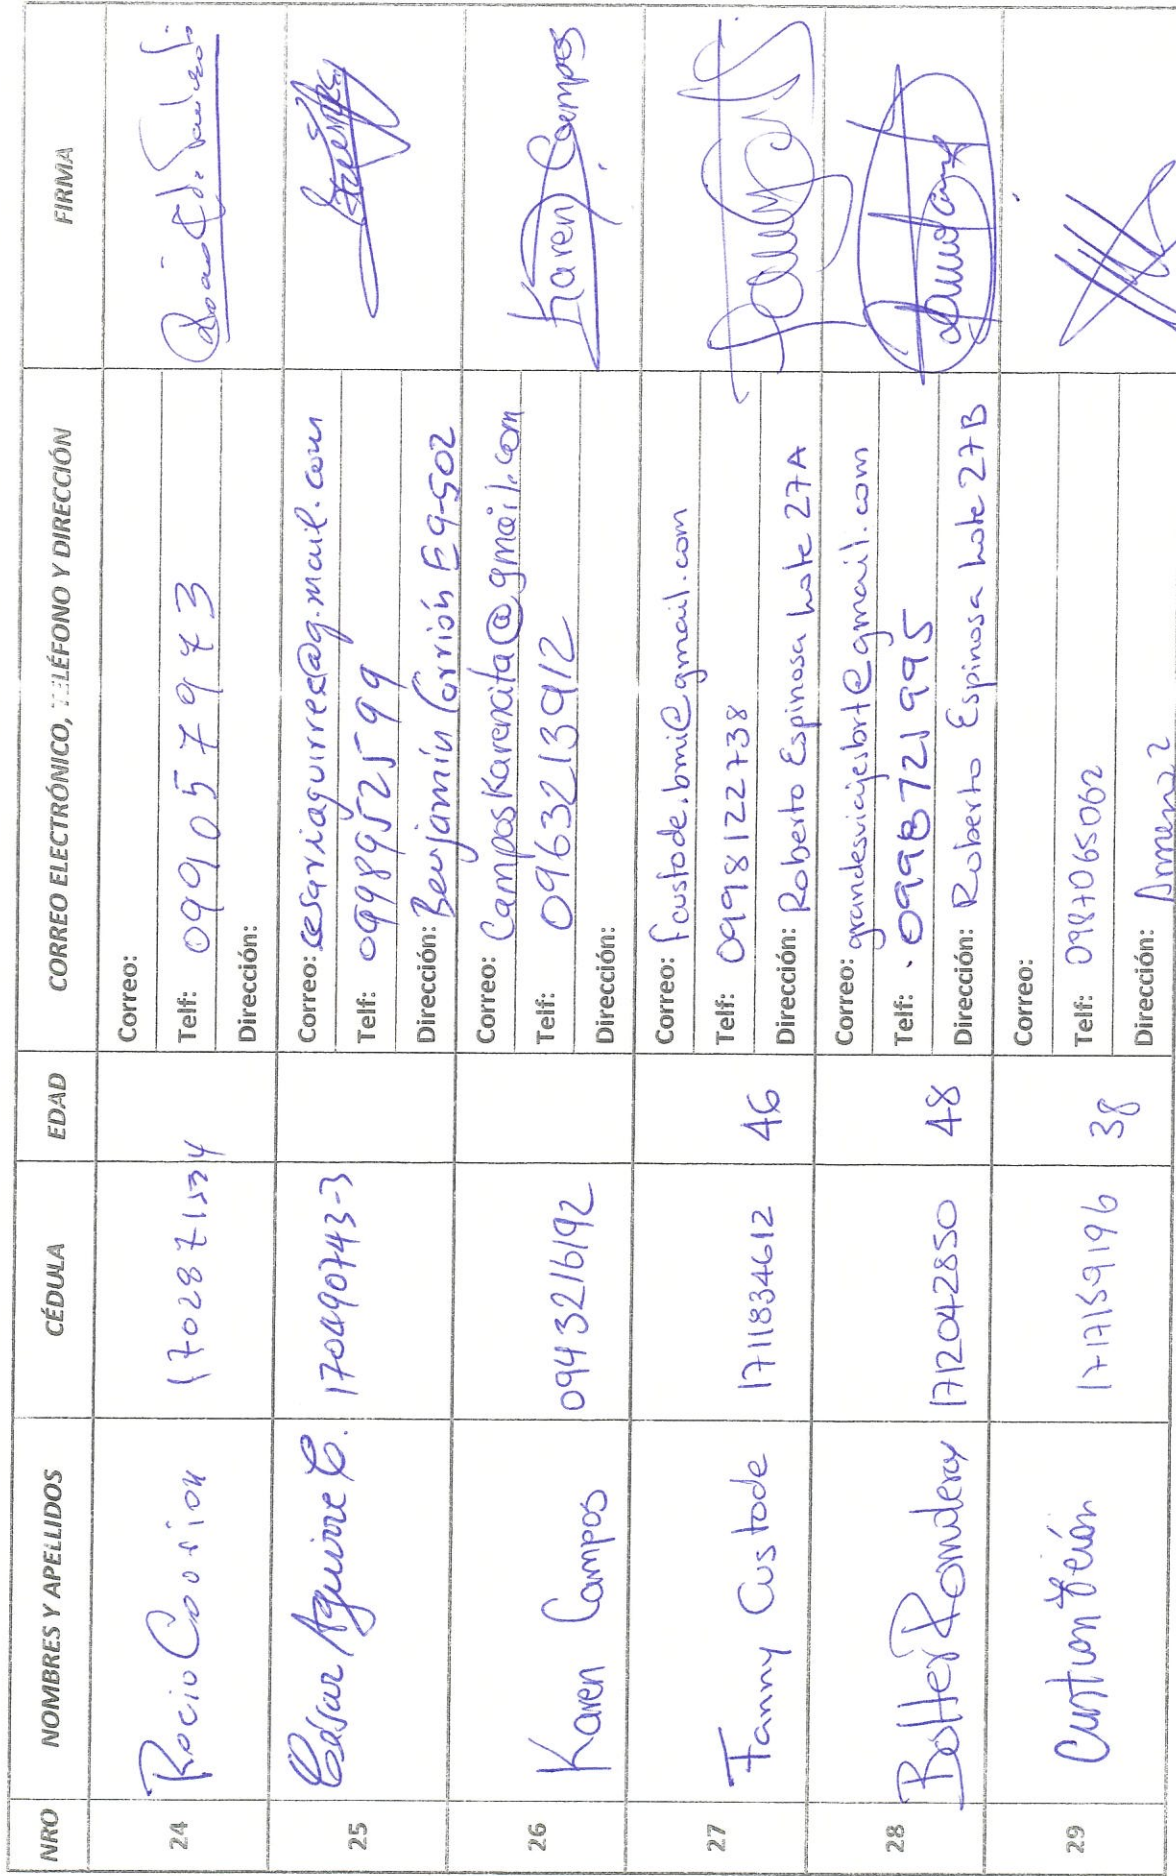 NRO NOMBRES Y APELLIDOS CÉDULA EDAD CORREO ELECTRÓNICO, TELÉFONO Y DIRECCIÓN FIRMA
24 Rocio Carrion
Correo:
Telf: 0990579973
Dirección:
25 César Aguirre C. 170490743-3
Correo: cesariaguirre@g.mail.com
Telf: 0998952599
Dirección: Benjamín Carrión E9-502
26 Karen Campos 0943216192 Karen Campos
Correo: Camposkarencita@gmail.com
Telf: 0963213912
Dirección:
27 Fanny Custode 1711834612 46
Correo: fcustode.bmi@gmail.com
Telf: 0998122738
Dirección: Roberto Espinosa Lote 27A
28 1712042850 48
Correo: grandesviajesbrt@gmail.com
Telf: 0998721995
Dirección: Roberto Espinosa Lote 27B
29 1717159196 38
Correo:
Telf: 0987065062
Dirección: